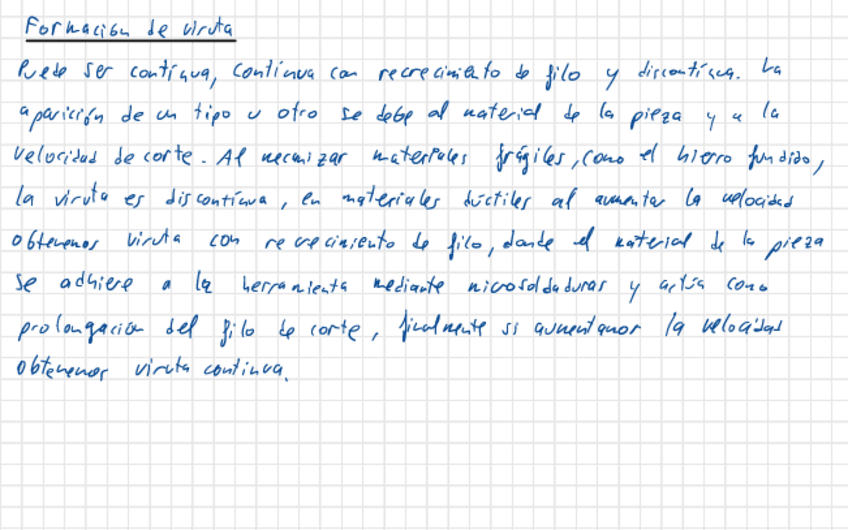 Formación de viruta
Puede ser contínua, contínua con recrecimiento de filo y discontínua. La
aparición de un tipo u otro se debe al material de la pieza y a la
velocidad de corte. Al mecanizar materiales frágiles, como el hierro fundido,
la viruta es discontínua, en materiales dúctiles al aumentar la velocidad
obtenemos viruta con recrecimiento de filo, donde el material de la pieza
se adhiere a la herramienta mediante microsoldaduras y actúa como
prolongación del filo de corte, finalmente si aumentamos la velocidad
obtenemos viruta continua.